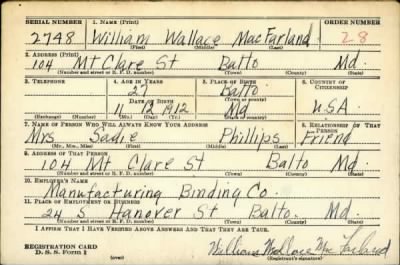 SERIAL NUMBER 1. NAME (Print) ORDER NUMBER
2748 William Wallace MacFarland 28
(First) (Middle) (Last)
2. ADDRESS (Print)
104 Mt Clare St Balto Md.
(Number and street or R. F. D. number) (Town) (County) (State)
3. TELEPHONE 4. AGE IN YEARS 5. PLACE OF BIRTH 6. COUNTRY OF CITIZENSHIP
27 Balto.
DATE OF BIRTH (Town or county)
11 12 1912 Md U.S.A.
(Exchange) (Number) (Mo.) (Day) (Yr.) (State or country)
7. NAME OF PERSON WHO WILL ALWAYS KNOW YOUR ADDRESS 8. RELATIONSHIP OF THAT PERSON
Mrs Sadie Phillips Friend
(Mr., Mrs., Miss) (First) (Middle) (Last)
9. ADDRESS OF THAT PERSON
104 Mt Clare St Balto Md.
(Number and street or R. F. D. number) (Town) (County) (State)
10. EMPLOYER'S NAME
Manufacturing Binding Co.
11. PLACE OF EMPLOYMENT OR BUSINESS
24 S. Hanover St Balto. Md.
(Number and street or R. F. D. number) (Town) (County) (State)
I AFFIRM THAT I HAVE VERIFIED ABOVE ANSWERS AND THAT THEY ARE TRUE.
REGISTRATION CARD
D. S. S. Form 1 (over) William Wallace MacFarland
(Registrant's signature)